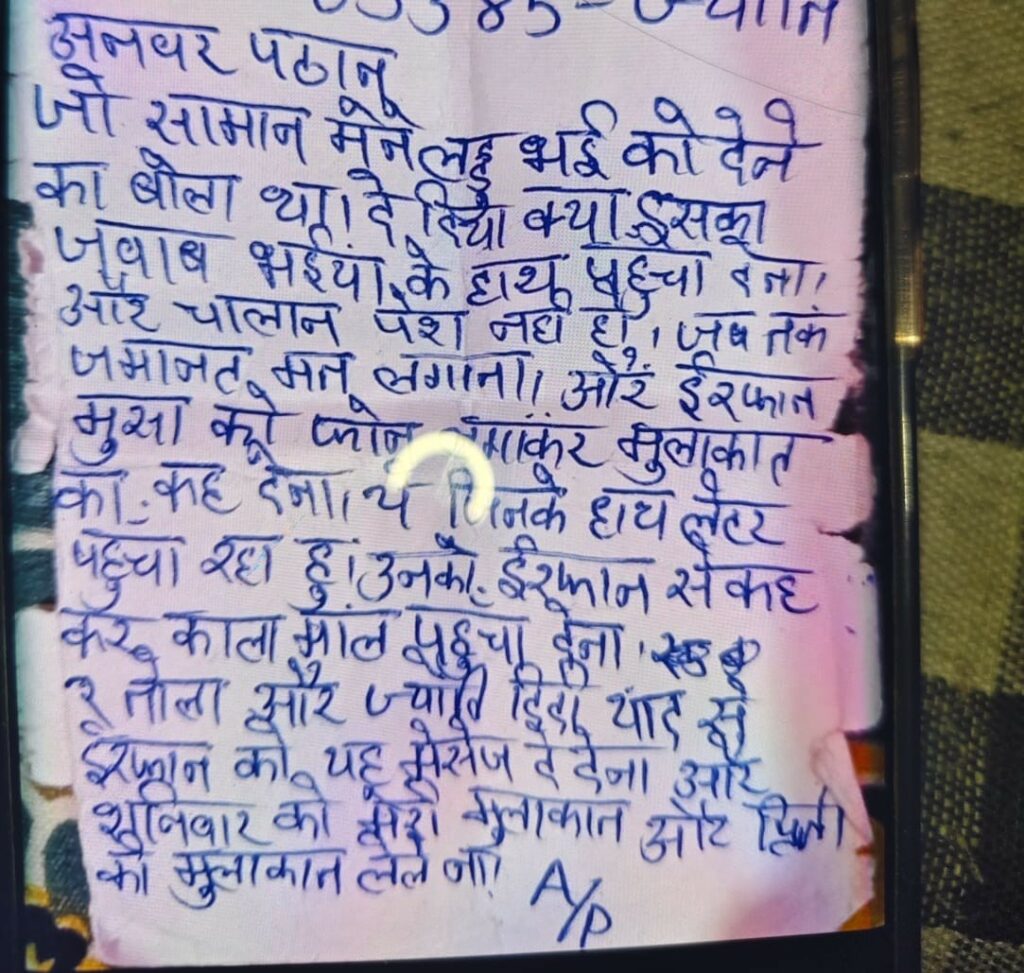 अनवर पठान
जो सामान मेने लहु भई को देने
का बोला था। दे दिया क्या इसका
जवाब भईया के हाथ पहुचा देना।
और चालान पेश नही हो, जब तक
जमानत मत लगाना। और ईरफान
मुसा को फोन लगाकर मुलाकात
का कह देना। ये जिनके हाथ लेटर
पहुचा रहा हु। उनको ईरफान से कह
कर काला माल पहुचा देना।
२ तोला और ज्योति दिदी याद से
इरफान को यह मेसेज दे देना और
शनिवार को मेरी मुलाकात और
की मुलाकात लेले ना।
A/P